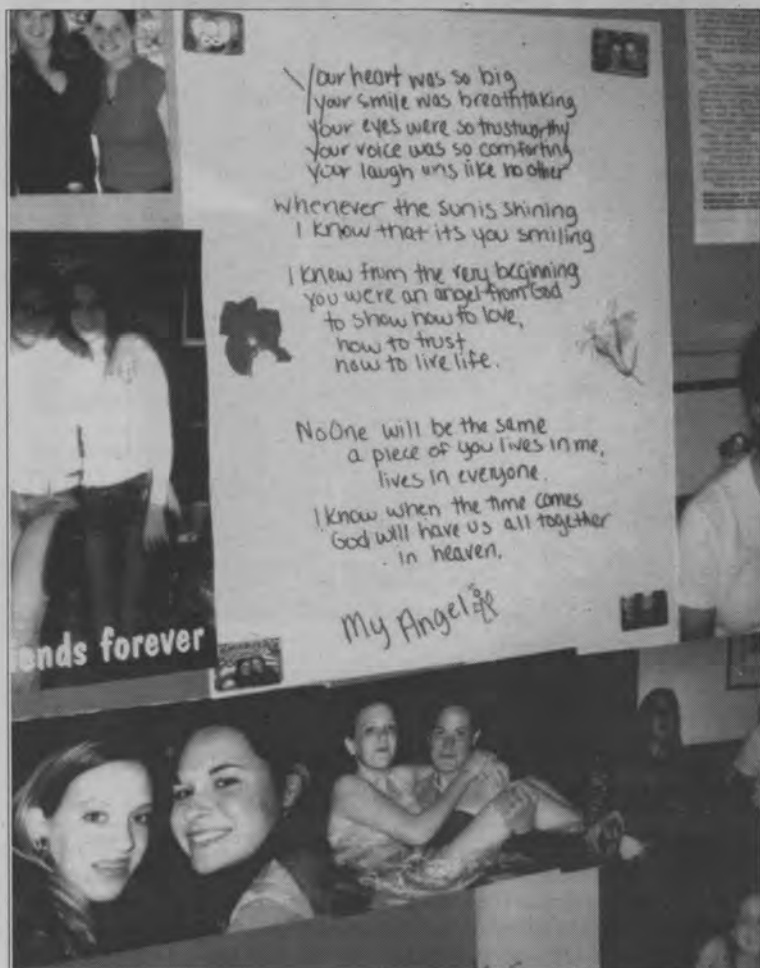 Your heart was so big
your smile was breathtaking
your eyes were so trustworthy
your voice was so comforting
your laugh was like no other
whenever the sun is shining
I know that its you smiling
I knew from the very beginning
you were an angel from God
to show how to love,
how to trust
how to live life.
No One will be the same
a piece of you lives in me,
lives in everyone.
I know when the time comes
God will have us all together
in heaven.
My Angel
ends forever